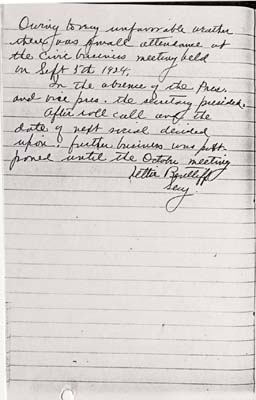 Owing to very unfavorable weather
there was small attendance at
the Civic business meeting held
on Sept 5th 1924.
In the absence of the Pres.
and vice pres. the secretary presided.
After roll call and the
date of next social decided
upon. further business was post-
poned until the October meeting
Secy.